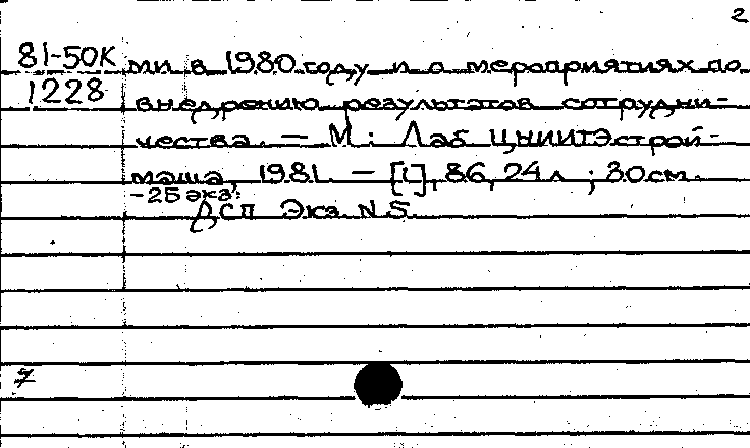 2
81-50К ми в 1980 году и о мероприятиях по
1228 внедрению результатов сотрудни-
чества. — М: Лаб ЦНИИТЭстрой-
маша, 1981. — [1], 86, 24 л ; 30 см.
-25 экз.
ДСП Экз. N 5.
7